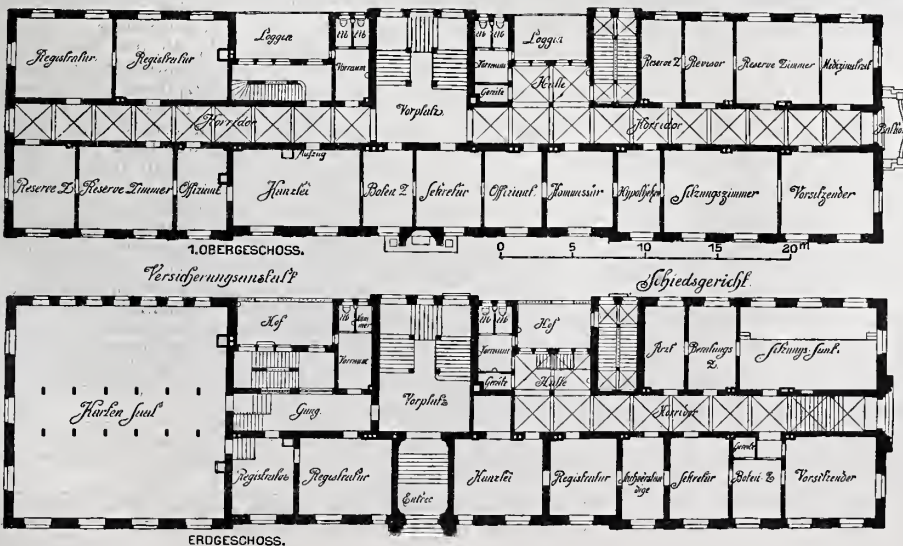 Registratur.
Registratur
Loggia
Ab Ab
Vorraum
Vorplatz
Ab Ab
Vorraum
Geräte
Loggia
Halle
Reserve Z
Revisor
Reserve Zimmer
Korridor
Korridor
Reserve Z
Reserve Zimmer
Offiziant.
Aufzug
Kanzlei
Boten Z
Sekretär
Offiziant.
Kommissär
Hypotheken
Sitzungszimmer
Vorsitzender
1.OBERGESCHOSS.
0 5 10 15 20 m
Versicherungsanstalt
Schiedsgericht.
Hof
Ab
Vorraum
Vorplatz
Ab Ab
Vorraum
Geräte
Hof
Halle
Arzt
Beratungs
Z.
Sitzungs Saal.
Karten Saal
Gang.
Korridor
Registratur
Registratur
Entree
Kanzlei
Registratur
Sekretär
Geräte
Boten Z
Vorsitzender
ERDGESCHOSS.